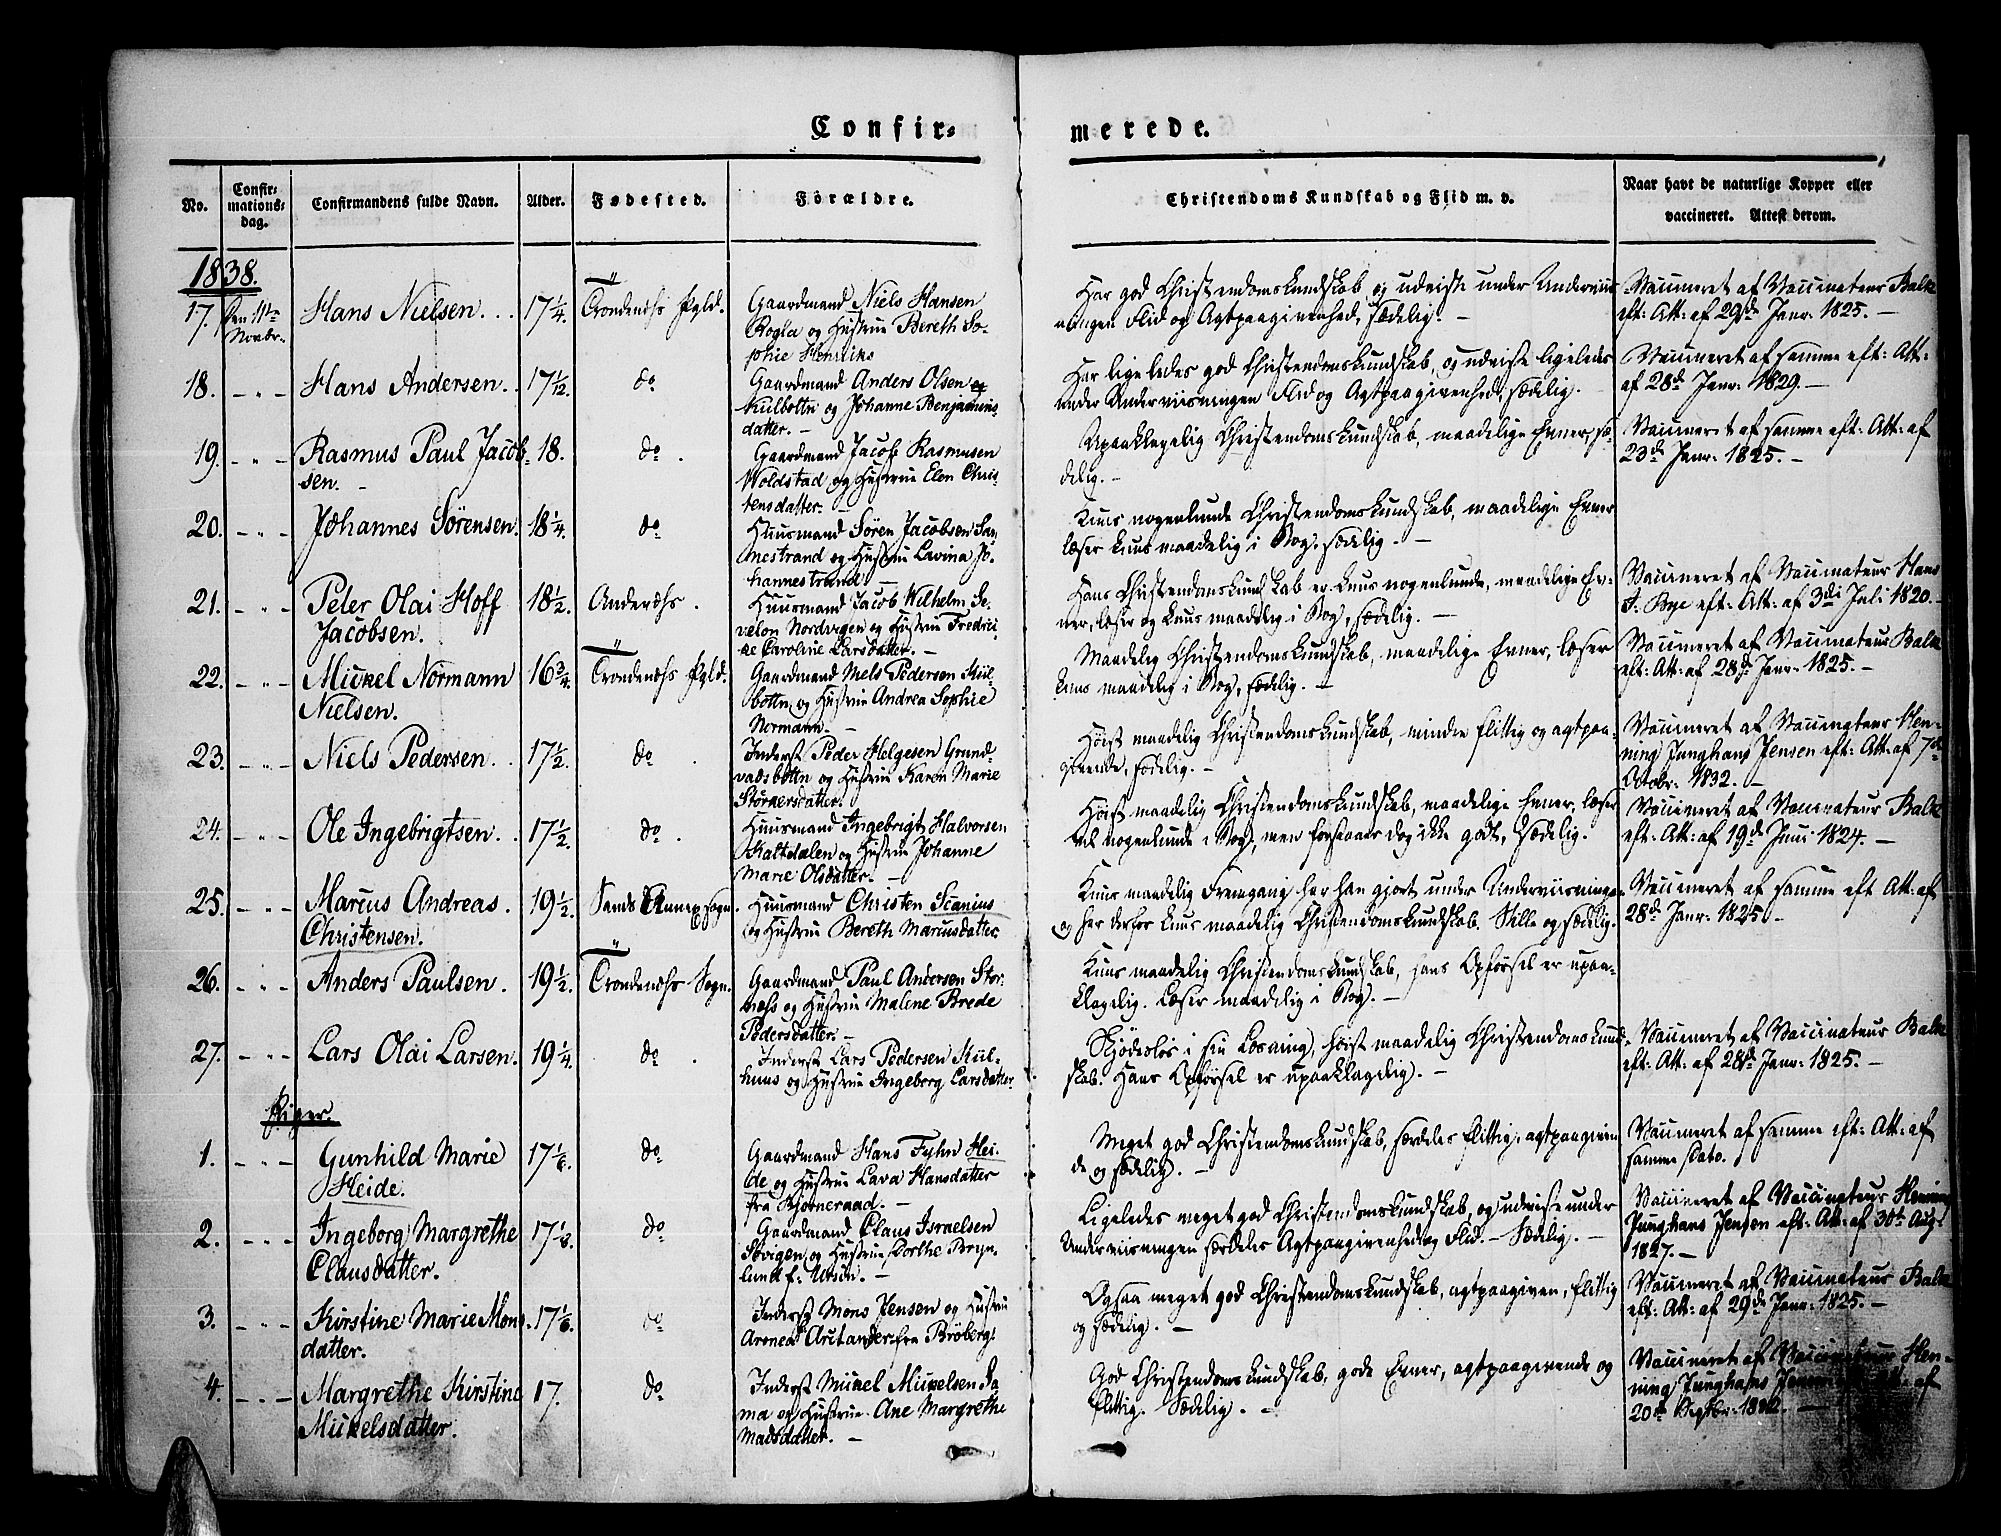 Confir-
merede.
No.
Confir-
mations-
dag.
Confirmandens fulde Navn.
Alder.
Fødested.
Forældre.
Christendoms Kundskab og Flid m. v.
Naar havt de naturlige Kopper eller
vaccineret. Attest derom.
1838.
17.
Den 11te
Novbr.
Hans Nielsen.
17 1/4.
Trondenæs Pgld.
Gaardmand Niels Hansen
Rogla og Hustrue Bereth So-
phie Henriks
Har god Christendomskundskab og udviste under Underviis-
ningen Flid og Agtpaagivenhed, sædelig. —
Vaccineret af Vaccinateur Balke
eft: Att: af 29de Janr: 1825. —
18.
Hans Andersen.
17 1/2.
do
Gaardmand Anders Olsen
Kulbottn og Johanne Benjamins
datter. —
Har ligeledes god Christendomskundskab, og udviste ligeledes
under Underviisningen Flid og Agtpaagivenhed, sædelig.
Vaccineret af samme eft: Att:
af 28de Janr: 1829. —
19.
Rasmus Paul Jacob-
sen. —
18.
do
Gaardmand Jacob Rasmusen
Woldstad og Hustrue Elen Chris-
tensdatter. —
Upaaklagelig Christendomskundskab, maadelige Evner, sæ-
delig. —
Vaccineret af samme eft: Att: af
23de Janr: 1825. —
20.
Johannes Sörensen.
18 1/4.
do
Huusmand Sören Jacobsen Sa-
mestrand og Hustrue Lavina Jo-
hannestrand
Kuns nogenlunde Christendomskundskab, maadelige Evner
læser kuns maadelig i Bog, sædelig. —
21.
Peter Olai Hoff
Jacobsen.
18 1/2.
Andenæs.
Huusmand Jacob Wilhelm Se-
velon Nordvigen og Hustrue Fredri-
ke Caroline Larsdatter. —
Hans Christendomskundskab er kuns nogenlunde, maadelige Ev-
ner, læser og kuns maadelig i Bog, sædelig. —
Vaccineret af Vaccinateur Hans
J. Bye eft: Att: af 3di Juli 1820. —
22.
Mickel Normann
Nielsen.
16 3/4.
Trondenæs Pgld.
Gaardmand Niels Pedersen Kul-
bottn og Hustrue Andrea Sophie
Normann. —
Maadelig Christendomskundskab, maadelige Evner, læser
kuns maadelig i Bog, sædelig. —
Vaccineret af Vaccinateur Balke
eft: Att: af 28de Janr: 1825. —
23.
Niels Pedersen.
17 1/2.
do
Inderst Peder Helgesen Grund-
vadsbottn og Hustrue Karen Marie
Störkersdatter.
Höist maadelig Christendomskundskab, mindre flittig og agtpaa-
givende, sædelig. —
Vaccineret af Vaccinateur Hen-
ning Junghans Jensen eft: Att: af 7de
Octobr: 1832. —
24.
Ole Ingebrigtsen.
17 1/2.
do
Huusmand Ingebrigt Halvorsen
Kaltdalen og Hustrue Johanne
Marie Olsdatter. —
Höist maadelig Christendomskundskab, maadelige Evner, læser
vel nogenlunde i Bog, men forstaaer dog ikke godt, Sædelig.
Vaccineret af Vaccinateur Balke
eft: Att: af 19de Juni 1824. —
25.
Marcus Andreas
Christensen.
19 1/2.
Sands Annexsogn.
Huusmand Christen Scanius
og Hustrue Bereth Marcusdatter
Kuns maadelig Fremgang har han gjort under Underviisningen
og har derfor kuns maadelig Christendomskundskab. Stille og sædelig.
Vaccineret af samme eft Att: af
28de Janr: 1825 —
26.
Anders Paulsen.
19 1/2.
Trondenæs Sogn.
Gaardmand Paul Andersen Stor-
næs og Hustrue Malene Brede
Pedersdatter. —
Kuns maadelig Christendomskundskab, hans Opförsel er upaa-
klagelig. Læser maadelig i Bog. —
27.
Lars Olai Larsen.
19 1/4.
do
Inderst Lars Pedersen Kul-
huus og Hustrue Ingeborg Larsdatter
Skjödeslös i sin Læsning, höist maadelig Christendomskund-
skab. Hans Opförsel er upaaklagelig. —
Vaccineret af Vaccinateur Balke
eft: Att: af 28de Janr: 1825. —
Piger.
1.
Gunhild Marie
Heide.
17 1/6.
do
Gaardmand Hans Fyhn Hei-
de og Hustrue Lava Hansdatter
fra Kjörneraad. —
Meget god Christendomskundskab, særdeles flittig, agtpaagiven-
de og sædelig. —
Vaccineret af samme eft: Att: af
samme Dato.
2.
Ingeborg Margrethe
Clausdatter.
17 1/8.
do
Gaardmand Claus Israelsen
Sövigen og Hustrue Dorthe Bryn-
lund f: Ursin. —
Ligeledes meget god Christendomskundskab, og udviste under
Underviisningen særdeles Agtpaagivenhed og Flid. — Sædelig. —
Vaccineret af Vaccinateur Henning
Junghans Jensen eft: Att: af 30te Aug:
1827. —
3.
Kirstine Marie Mons-
datter.
17 1/6.
do
Inderst Mons Jensen og Hustrue
Arenea Arctander fra Bröberg.
Ogsaa meget god Christendomskundskab, agtpaagiven, flittig
og sædelig. —
Vaccineret af Vaccinateur Balke
eft: Att: af 29de Janr: 1825. —
4.
Margrethe Kirstine
Mickelsdatter.
17.
do
Inderst Mickel Mickelsen Sa-
ma og Hustrue Ane Margrethe
Madsdatter. —
God Christendomskundskab, gode Evner, agtpaagivende og
flittig. Sædelig. —
Vaccineret af Vaccinateur Hen-
ning Junghans Jensen eft: Att: af
20de Septbr: 1832. —